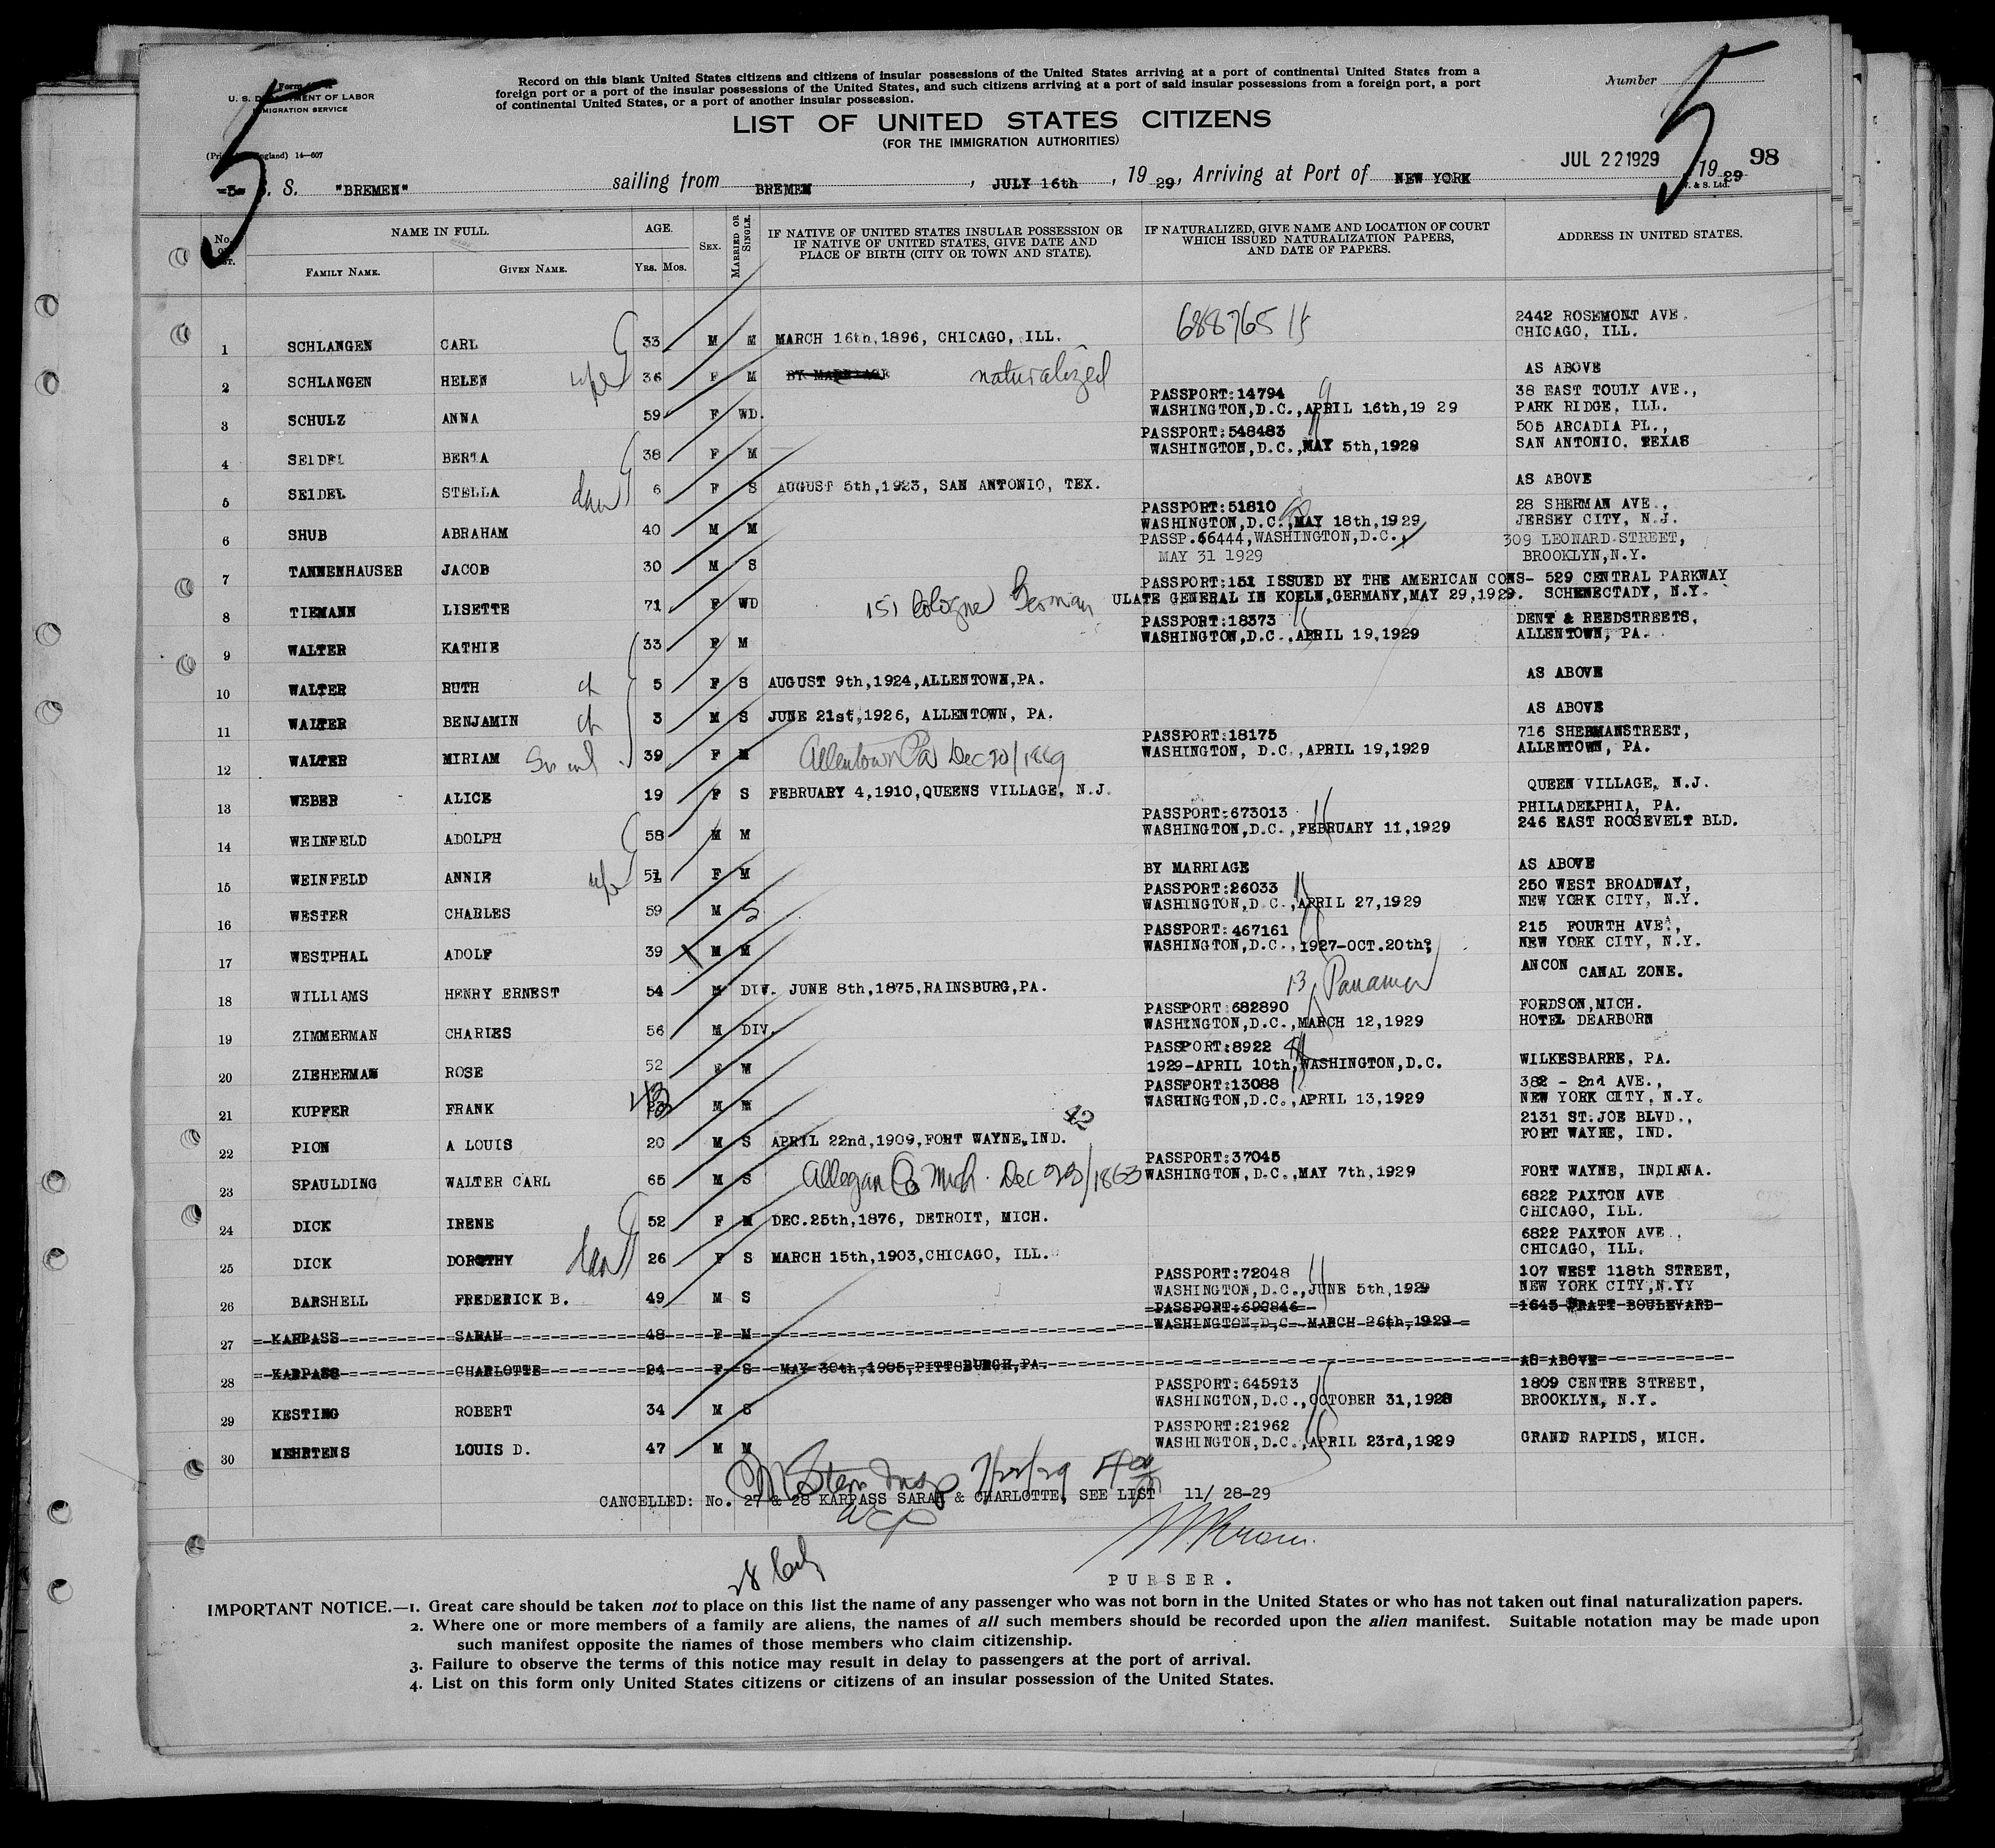 Form
U. S. DEPARTMENT OF LABOR
IMMIGRATION SERVICE
14—607
Record on this blank United States citizens and citizens of insular possessions of the United States arriving at a port of continental United States from a
foreign port or a port of the insular possessions of the United States, and such citizens arriving at a port of said insular possessions from a foreign port, a port
of continental United States, or a port of another insular possession.
Number
5
5
LIST OF UNITED STATES CITIZENS
(FOR THE IMMIGRATION AUTHORITIES)
JUL 22 1929
98
S. S. "BREMEN" sailing from BREMEN, JULY 16th, 19 29, Arriving at Port of NEW YORK 19 29
NAME IN FULL. AGE. SEX. MARRIED OR SINGLE.
FAMILY NAME. GIVEN NAME. YRS. MOS.
IF NATIVE OF UNITED STATES INSULAR POSSESSION OR
IF NATIVE OF UNITED STATES, GIVE DATE AND
PLACE OF BIRTH (CITY OR TOWN AND STATE).
IF NATURALIZED, GIVE NAME AND LOCATION OF COURT
WHICH ISSUED NATURALIZATION PAPERS,
AND DATE OF PAPERS.
ADDRESS IN UNITED STATES.
2442 ROSEMONT AVE.
1 SCHLANGEN CARL 33 M M MARCH 16th,1896, CHICAGO, ILL. 688765 CHICAGO, ILL.
2 SCHLANGEN HELEN wife 36 F M BY MARRIAGE naturalized AS ABOVE
PASSPORT:14794 38 EAST TOULY AVE.,
3 SCHULZ ANNA 59 F WD. WASHINGTON,D.C.,APRIL 16th,19 29 PARK RIDGE, ILL.
PASSPORT:548483 505 ARCADIA PL.,
4 SEIDEL BERTA 38 F M WASHINGTON,D.C.,MAY 5th,1928 SAN ANTONIO. TEXAS
5 SEIDEL STELLA dau 6 F S AUGUST 5th,1923, SAN ANTONIO, TEX. AS ABOVE
PASSPORT:51810 28 SHERMAN AVE.,
6 SHUB ABRAHAM 40 M M WASHINGTON,D.C.,MAY 18th,1929 JERSEY CITY, N.J.
PASSP.66444,WASHINGTON,D.C., 309 LEONARD STREET,
7 TANNENHAUSER JACOB 30 M S MAY 31 1929 BROOKLYN,N.Y.
PASSPORT:151 ISSUED BY THE AMERICAN CONS- 529 CENTRAL PARKWAY
8 TIEMANN LISETTE 71 F WD 151 Cologne German ULATE GENERAL IN KOELN,GERMANY,MAY 29,1929. SCHENECTADY, N.Y.
PASSPORT:18373 DENT & REEDSTREETS,
9 WALTER KATHIE 33 F M WASHINGTON,D.C.,APRIL 19,1929 ALLENTOWN, PA.
10 WALTER RUTH ch 5 F S AUGUST 9th,1924,ALLENTOWN,PA. AS ABOVE
11 WALTER BENJAMIN ch 3 M S JUNE 21st,1926, ALLENTOWN, PA. AS ABOVE
PASSPORT:18175 716 SHERMANSTREET,
12 WALTER MIRIAM 39 F M Allentown Pa Dec 20/1889 WASHINGTON, D.C.,APRIL 19,1929 ALLENTOWN, PA.
13 WEBER ALICE 19 F S FEBRUARY 4,1910,QUEENS VILLAGE, N.J. QUEEN VILLAGE, N.J.
PASSPORT:673013 PHILADELPHIA, PA.
14 WEINFELD ADOLPH 58 M M WASHINGTON,D.C.,FEBRUARY 11,1929 246 EAST ROOSEVELT BLD.
15 WEINFELD ANNIE wife 51 F M BY MARRIAGE AS ABOVE
PASSPORT:26033 250 WEST BROADWAY,
16 WESTER CHARLES 59 M S WASHINGTON,D.C.,APRIL 27,1929 NEW YORK CITY, N.Y.
PASSPORT:467161 215 FOURTH AVE.,
17 WESTPHAL ADOLF 39 M M WASHINGTON,D.C.,1927-OCT.20th, NEW YORK CITY, N.Y.
18 WILLIAMS HENRY ERNEST 54 M DIV. JUNE 8th,1875,RAINSBURG,PA. 13 Panama ANCON CANAL ZONE.
PASSPORT 682890 FORDSON,MICH.
19 ZIMMERMAN CHARLES 56 M DIV. WASHINGTON,D.C.,MARCH 12,1929 HOTEL DEARBORN
PASSPORT:8922
20 ZIEHERMAN ROSE 52 F M 1929-APRIL 10th,WASHINGTON,D.C. WILKESBARRE, PA.
PASSPORT:13088 382 - 2nd AVE.,
21 KUPFER FRANK 43 M M WASHINGTON,D.C.,APRIL 13,1929 NEW YORK CITY, N.Y.
42 2131 ST.JOE BLVD.,
22 PION A LOUIS 20 M S APRIL 22nd,1909,FORT WAYNE,IND. FORT WAYNE, IND.
PASSPORT:37045
23 SPAULDING WALTER CARL 65 M S Allegan Co Mich. Dec 23/1863 WASHINGTON, D.C.,MAY 7th,1929 FORT WAYNE, INDIANA.
6822 PAXTON AVE
24 DICK IRENE 52 F M DEC.25th,1876, DETROIT, MICH. CHICAGO, ILL.
6822 PAXTON AVE.,
25 DICK DOROTHY dau 26 F S MARCH 15th,1903,CHICAGO, ILL. CHICAGO, ILL.
PASSPORT:72048 107 WEST 118th STREET,
26 BARSHELL FREDERICK B. 49 M S WASHINGTON,D.C.,JUNE 5th,1929 NEW YORK CITY,N.YY
PASSPORT:692846 1645 PRATT BOULEVARD
27 KARPASS SARAH 48 F M WASHINGTON,D,C MARCH 26th,1929
28 KARPASS CHARLOTTE 24 F S MAY 30th,1905,PITTSBURGH,PA. AS ABOVE
PASSPORT:645913 1809 CENTRE STREET,
29 KESTING ROBERT 34 M S WASHINGTON,D.C.,OCTOBER 31,1928 BROOKLYN, N.Y.
PASSPORT:21962
30 MEHRTENS LOUIS D. 47 M M WASHINGTON,D.C.,APRIL 23rd,1929 GRAND RAPIDS, MICH.
Stern Insp 7/22/29
CANCELLED: No. 27 & 28 KARPASS SARAH & CHARLOTTE, SEE LIST 11/ 28-29
28
PURSER.
IMPORTANT NOTICE.—1. Great care should be taken not to place on this list the name of any passenger who was not born in the United States or who has not taken out final naturalization papers.
2. Where one or more members of a family are aliens, the names of all such members should be recorded upon the alien manifest. Suitable notation may be made upon
such manifest opposite the names of those members who claim citizenship.
3. Failure to observe the terms of this notice may result in delay to passengers at the port of arrival.
4. List on this form only United States citizens or citizens of an insular possession of the United States.